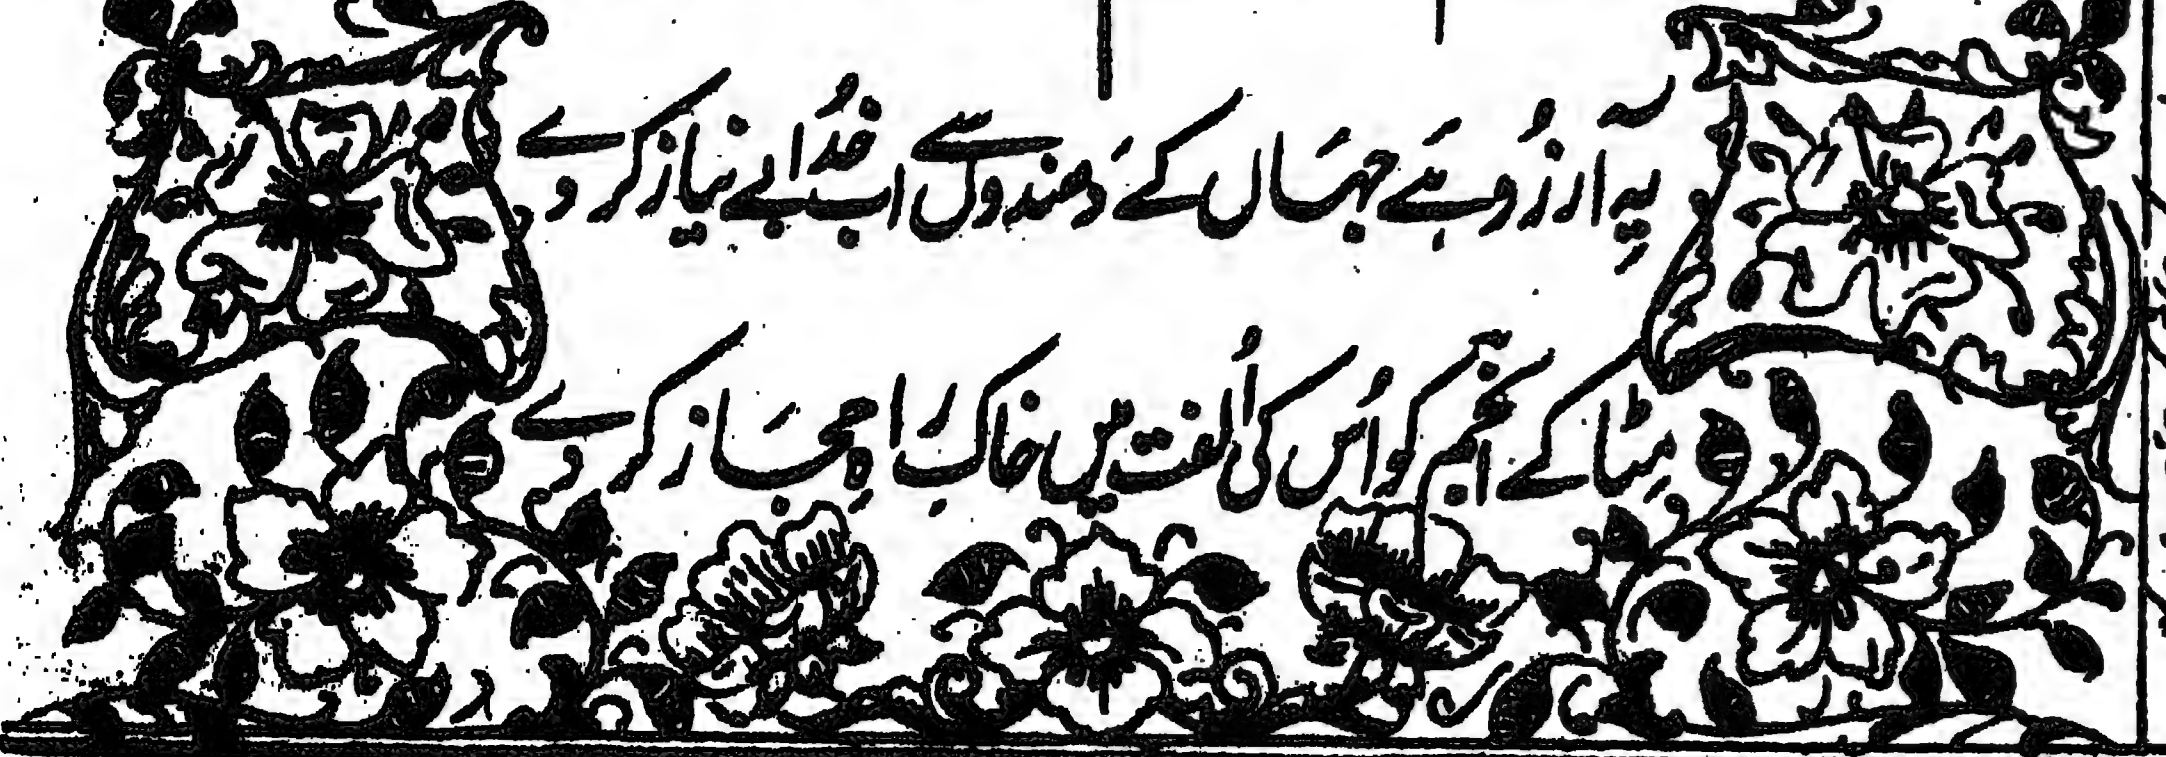 یہ آرزُو ہَے جہَاں کے دَھندوں سے اب خُدا بے نیاز کر دے
مٹا کے انجم کو اُس کی اُلفت میں خاکِ راہِ حجَاز کر دے